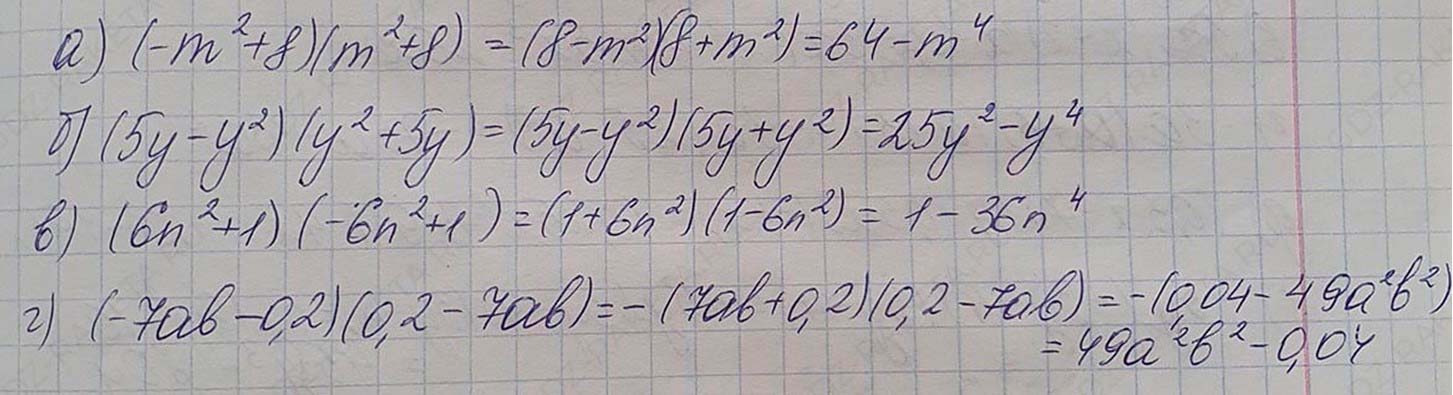 а) (-m²+8)(m²+8) = (8-m²)(8+m²)=64-m⁴
б) (5y-y²)(y²+5y)=(5y-y²)(5y+y²)=25y²-y⁴
в) (6n²+1)(-6n²+1)=(1+6n²)(1-6n²)= 1-36n⁴
г) (-7ab-0,2)(0,2-7ab)=-(7ab+0,2)(0,2-7ab)=-(0,04-49a²b²)
=49a²b²-0,04